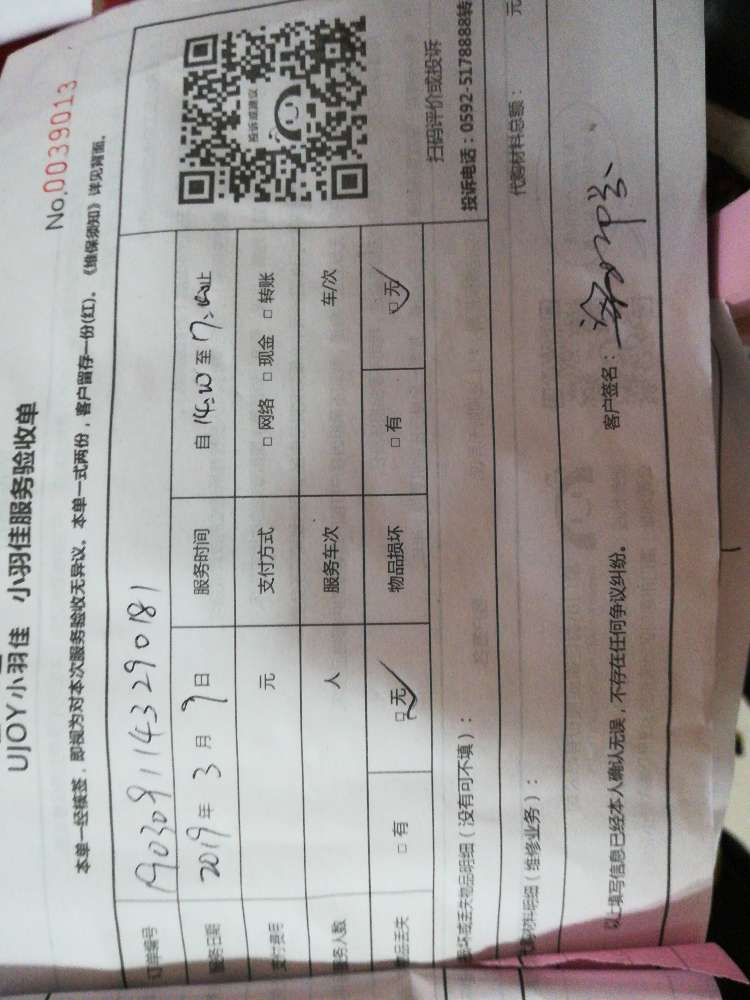 UJOY小羽佳 小羽佳服务验收单
No.0039013
本单一经核签，即视为对本次服务验收无异议。本单一式两份，客户留存一份(红)。《维保须知》详见背面。
订单编号 1903091143290181
服务日期 2019年3月9日 服务时间 自14:20至17:40止
支付费用 元 支付方式 □网络 □现金 □转账
服务人数 人 服务车次 车/次
物品丢失 □有 □无 物品损坏 □有 □无
投诉或建议
扫码评价或投诉
投诉电话：0592-5178888转
损坏或丢失物品明细（没有可不填）：
代购材料明细（维修业务）： 代购材料总额： 元
以上填写信息已经本人确认无误，不存在任何争议纠纷。 客户签名：